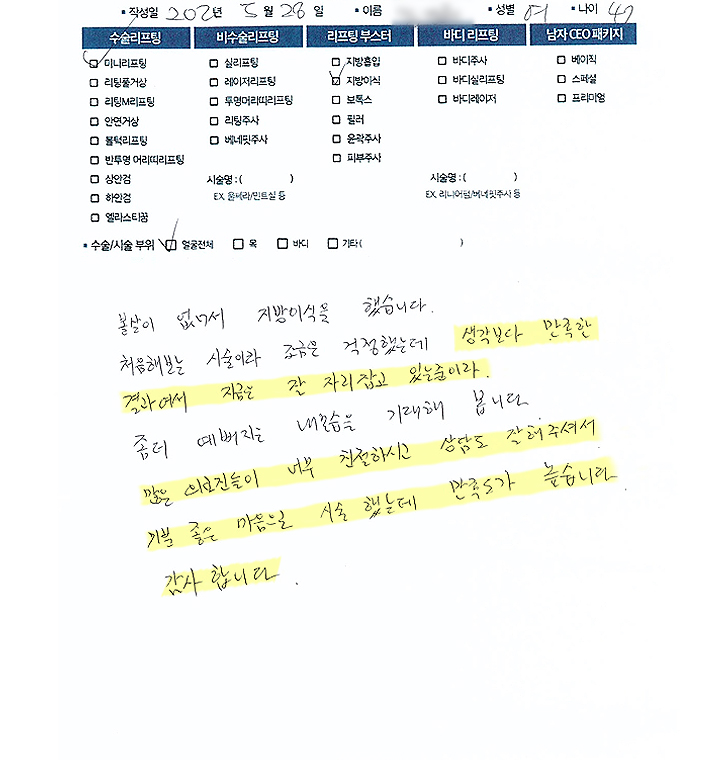 ▪ 작성일 202 년 5 월 28 일 ▪ 이름 ▪ 성별 여 ▪ 나이 47
수술리프팅 비수술리프팅 리프팅 부스터 바디 리프팅 남자 CEO 패키지
미니리프팅 실리프팅 지방흡입 바디주사 베이직
리팅풀거상 레이저리프팅 지방이식 바디실리프팅 스페셜
리팅M리프팅 투명머리띠리프팅 보톡스 바디레이저 프리미엄
안면거상 리팅주사 필러
볼턱리프팅 베네핏주사 윤곽주사
반투명 머리띠리프팅 피부주사
상안검 시술명 : ( ) 시술명 : ( )
하안검 EX. 울쎄라/민트실 등 EX. 리니어펌/베네핏주사 등
엘라스티꿈
▪ 수술/시술 부위 얼굴전체 목 바디 기타 ( )
볼살이 없어서 지방이식을 했습니다.
처음해보는 시술이라 조금은 걱정했는데 생각보다 만족한
결과여서 지금은 잘 자리잡고 있는중이라.
좀더 예뻐지는 내모습을 기대해 봅니다
많은 의료진들이 너무 친절하시고 상담도 잘해주셔서
기분 좋은 마음으로 시술 했는데 만족도가 높습니다
감사 합니다.